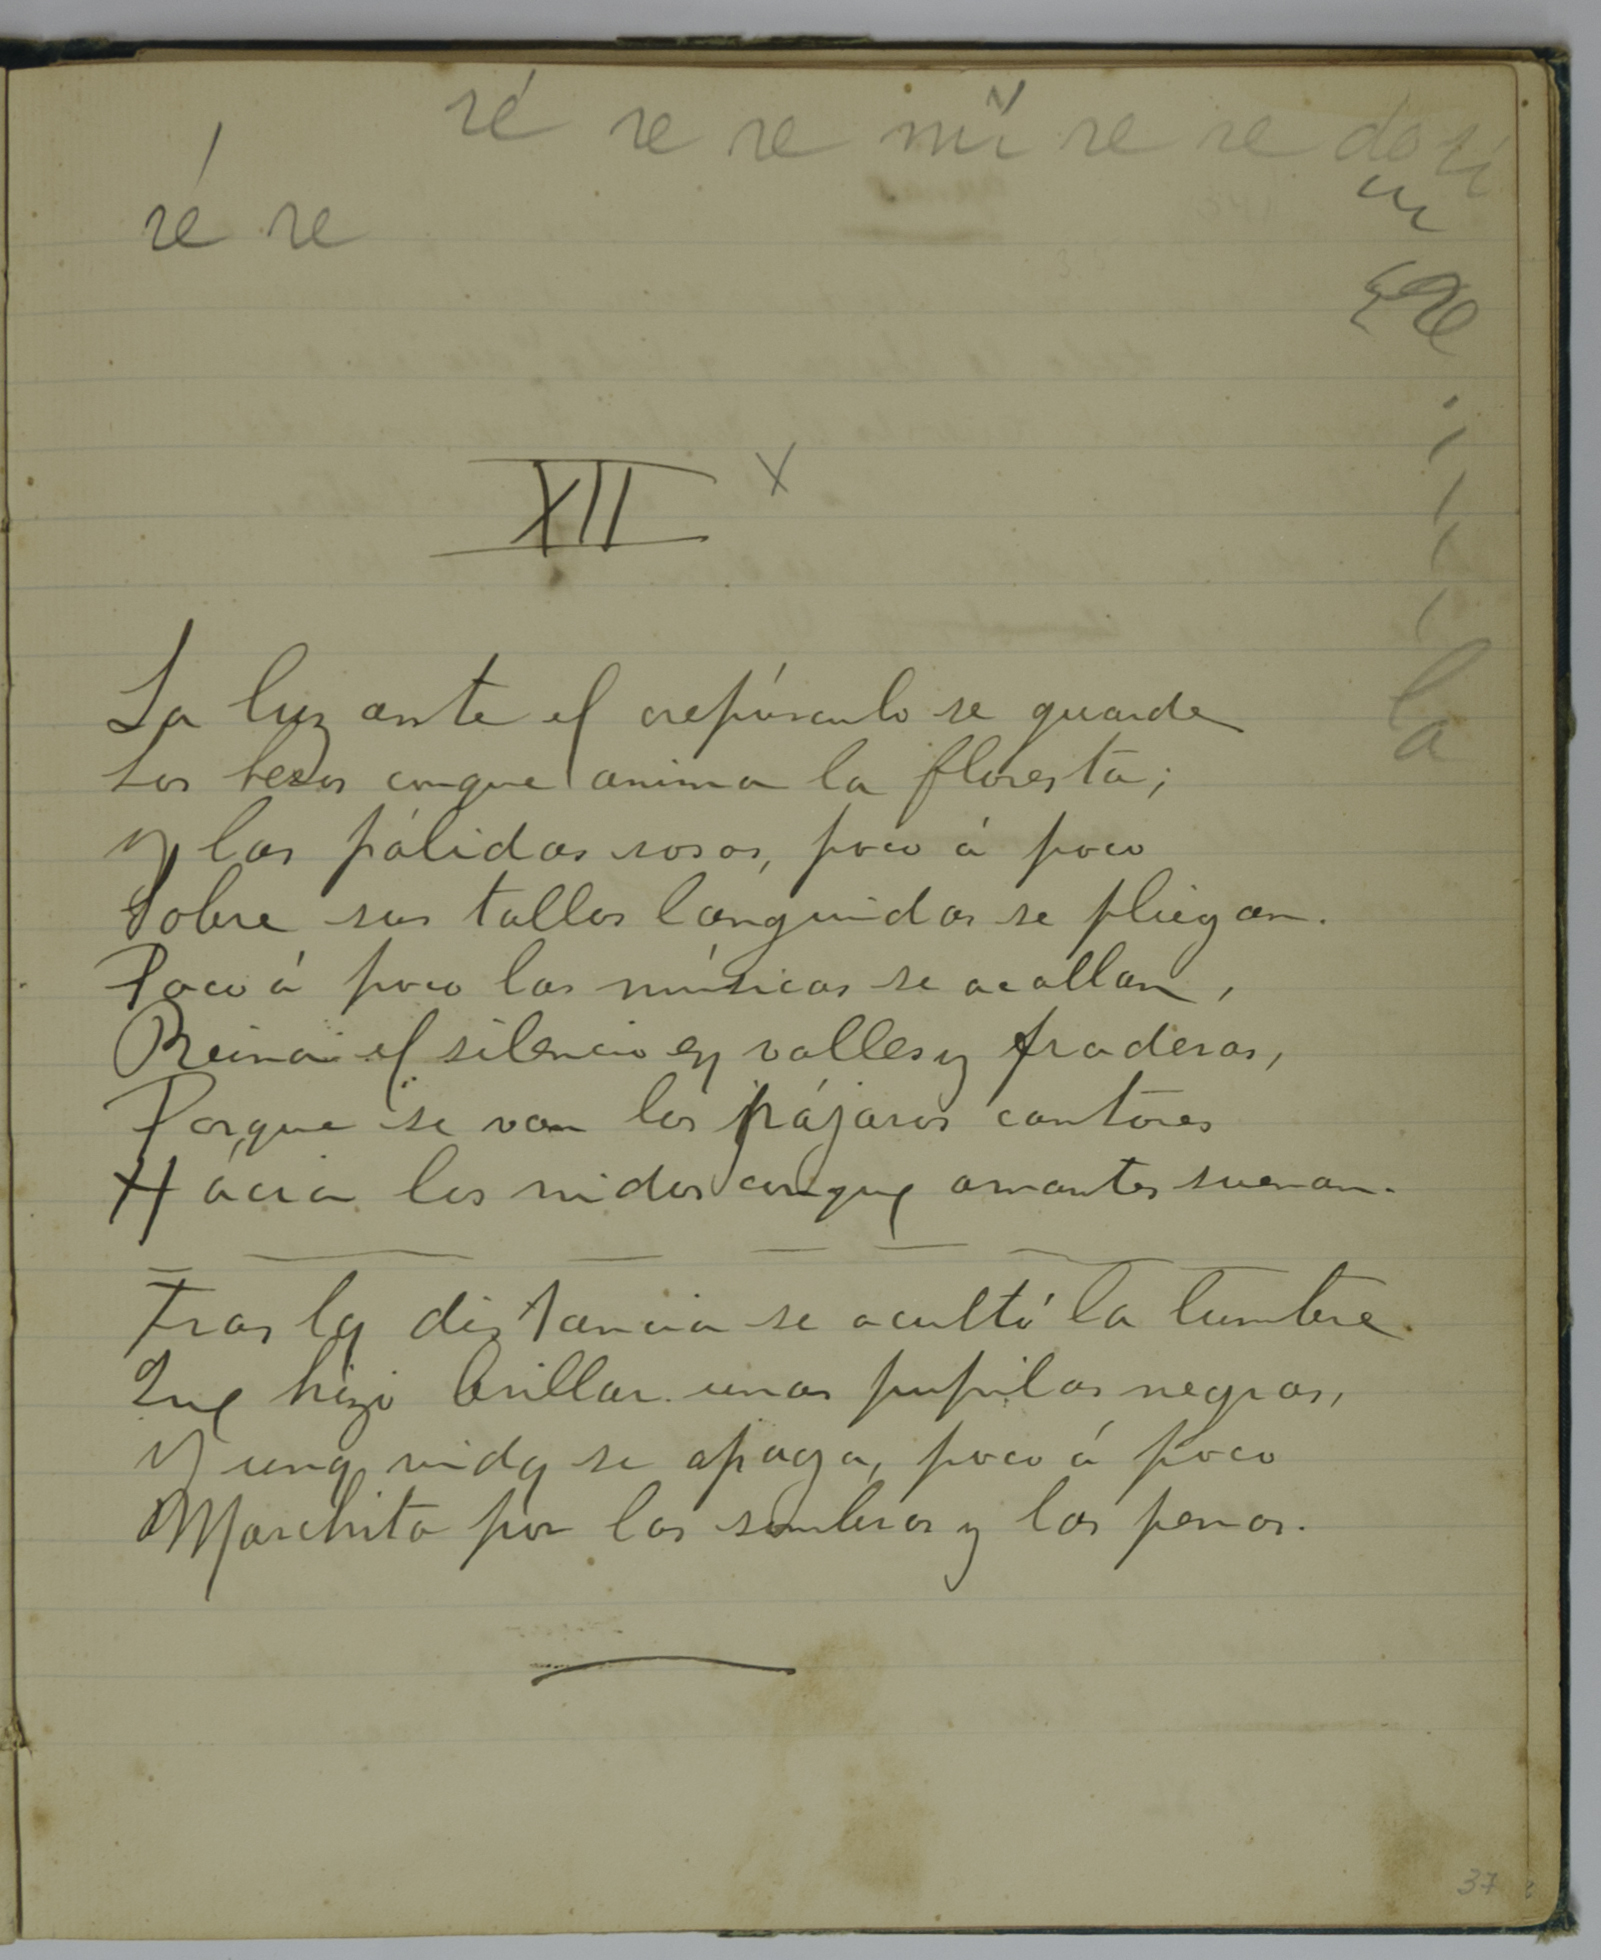 ré re re mi re re do si
ré re
XII x
La luz ante el crepúsculo se guarda
Los besos conque anima la floresta;
Y las pálidas rosas, poco á poco
Sobre sus tallos lánguidas se pliegan.
Poco á poco las músicas se acallan,
Reina el silencio en valles y praderas,
Porque se van los pájaros cantores
Hácia los nidos conque amantes suenan.
Tras la distancia se ocultó la lumbre
Que hizo brillar unas pupilas negras,
Y una vida se apaga, poco á poco
Marchita por las sombras y las penas.
la
37